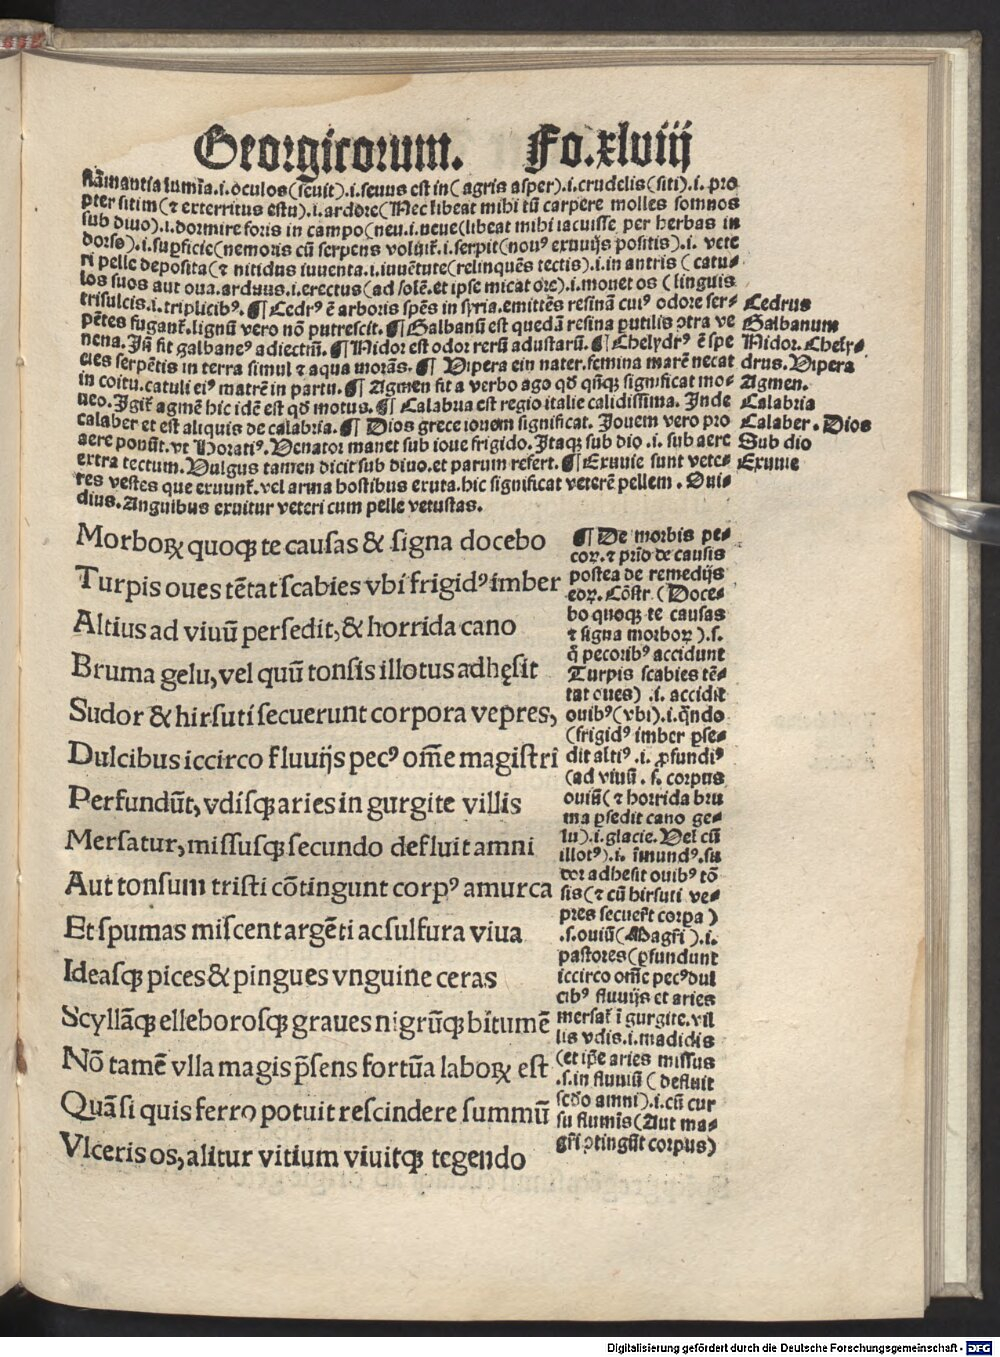 Georgicorum. Fo.xlviij
flãmantia lumĩa.i.oculos(seuit).i.seuus est in( agris asper).i.crudelis(siti).i. pro
pter sitim(⁊ exterritus estu).i.ardore(Nec libeat mihi tũ carpere molles somnos
sub diuo).i.dormire foris in campo(neu.i.neue(libeat mihi iacuisse per herbas in
dorso).i.suꝑficie(nemoris cũ serpens voluit᷑.i.serpit(nouꝰ exuuijs positis).i. vete
ri pelle deposita(⁊ nitidus iuuenta.i.iuuẽtute(relinquẽs tectis).i.in antris ( catu⸗
los suos aut oua.arduus.i.erectus(ad solẽ.et ipse micat ore).i.mouet os ( linguis
trisulcis.i.triplicibꝰ. ¶ Cedrꝰ ẽ arboris spẽs in syria.emittẽs resinã cuiꝰ odore ser⸗
pẽtes fugant᷑.lignũ vero nõ putrescit. ¶ Galbanũ est quedã resina ꝑutilis ↄtra ve
nena. Jñ fit galbaneꝰ adiectiũ. ¶ Nidor est odor rerũ adustarũ. ¶ Chelydrꝰ ẽ spe
cies serpẽtis in terra simul ⁊ aqua morãs. ¶ Vipera ein nater.femina marẽ necat
in coitu.catuli eiꝰ matrẽ in partu. ¶ Agmen fit a verbo ago qđ qñqꝫ significat mo⸗
ueo. Jgit᷑ agmẽ hic idẽ est qđ motus. ¶ Calabria est regio italie calidissima. Jnde
calaber et est aliquis de calabria. ¶ Dios grece iouem significat. Jouem vero pro
aere ponũt.vt Horatiꝰ. Venator manet sub ioue frigido. Jtaqꝫ sub dio .i. sub aere
extra tectum. Vulgus tamen dicit sub diuo.et parum refert. ¶ Exuuie sunt vete⸗
res vestes que exuunt᷑.vel arma hostibus exuta.hic significat veterẽ pellem . Oui⸗
dius. Anguibus exuitur veteri cum pelle vetustas.
Cedrus
Galbanum
Nidor. Chely⸗
drus. Vipera
Agmen.
Calabria
Calaber . Dios
Sub dio
Exuuie
Morboꝝ quoqꝫ te causas & signa docebo
Turpis oues tẽtat scabies vbi frigidꝰ imber
Altius ad viuũ persedit, & horrida cano
Bruma gelu, vel quũ tonsis illotus adhęsit
Sudor & hirsuti secuerunt corpora vepres,
Dulcibus iccirco fluuijs pecꝰ om̃e magistri
Perfundũt, vdisqꝫ aries in gurgite villis
Mersatur, missusqꝫ secundo defluit amni
Aut tonsum tristi cõtingunt corpꝰ amurca
Et spumas miscent argẽti ac sulfura viua
Ideasqꝫ pices & pingues vnguine ceras
Scyllãqꝫ elleborosqꝫ graues nigrũqꝫ bitumẽ
Nõ tamẽ vlla magis p̃sens fortũa laboꝝ est
Quã si quis ferro potuit rescindere summũ
Vlceris os, alitur vitium viuitqꝫ tegendo
¶ De morbis pe⸗
coꝝ. ⁊ prĩo de causis
postea de remedijs
eoꝝ. Cõstr (Doce⸗
bo quoqꝫ te causas
⁊ signa morboꝝ ).s.
q̃ pecoribꝰ accidunt
Turpis scabies tẽ⸗
tat oues) .i. accidit
ouibꝰ(vbi).i.qñdo
(frigidꝰ imber ꝑse⸗
dit altiꝰ .i. ꝓfundiꝰ
(ad viuũ . s. corpus
ouiũ( ⁊ horrida bru
ma ꝑsedit cano ge⸗
lu).i.glacie. Vel cũ
illotꝰ).i. ĩmundꝰ.su
dor adhesit ouibꝰ tõ
sis(⁊ cũ hirsuti ve⸗
pres secuer̃t corpa )
.s.ouiũ(Magr̃i ).i.
pastores(ꝑfundunt
iccirco om̃e pecꝰdul
cibꝰ fluuijs et aries
mersat᷑ ĩ gurgite.vil
lis vdis.i.madidis
(et ip̃e aries missus
.s.in fluuiũ ( defluit
scđo amni).i.cũ cur
su flumĩs(Aut ma⸗
gr̃i ↄtingũt corpus)
Digitalisierung gefördert durch die Deutsche Forschungsgemeinschaft - DFG